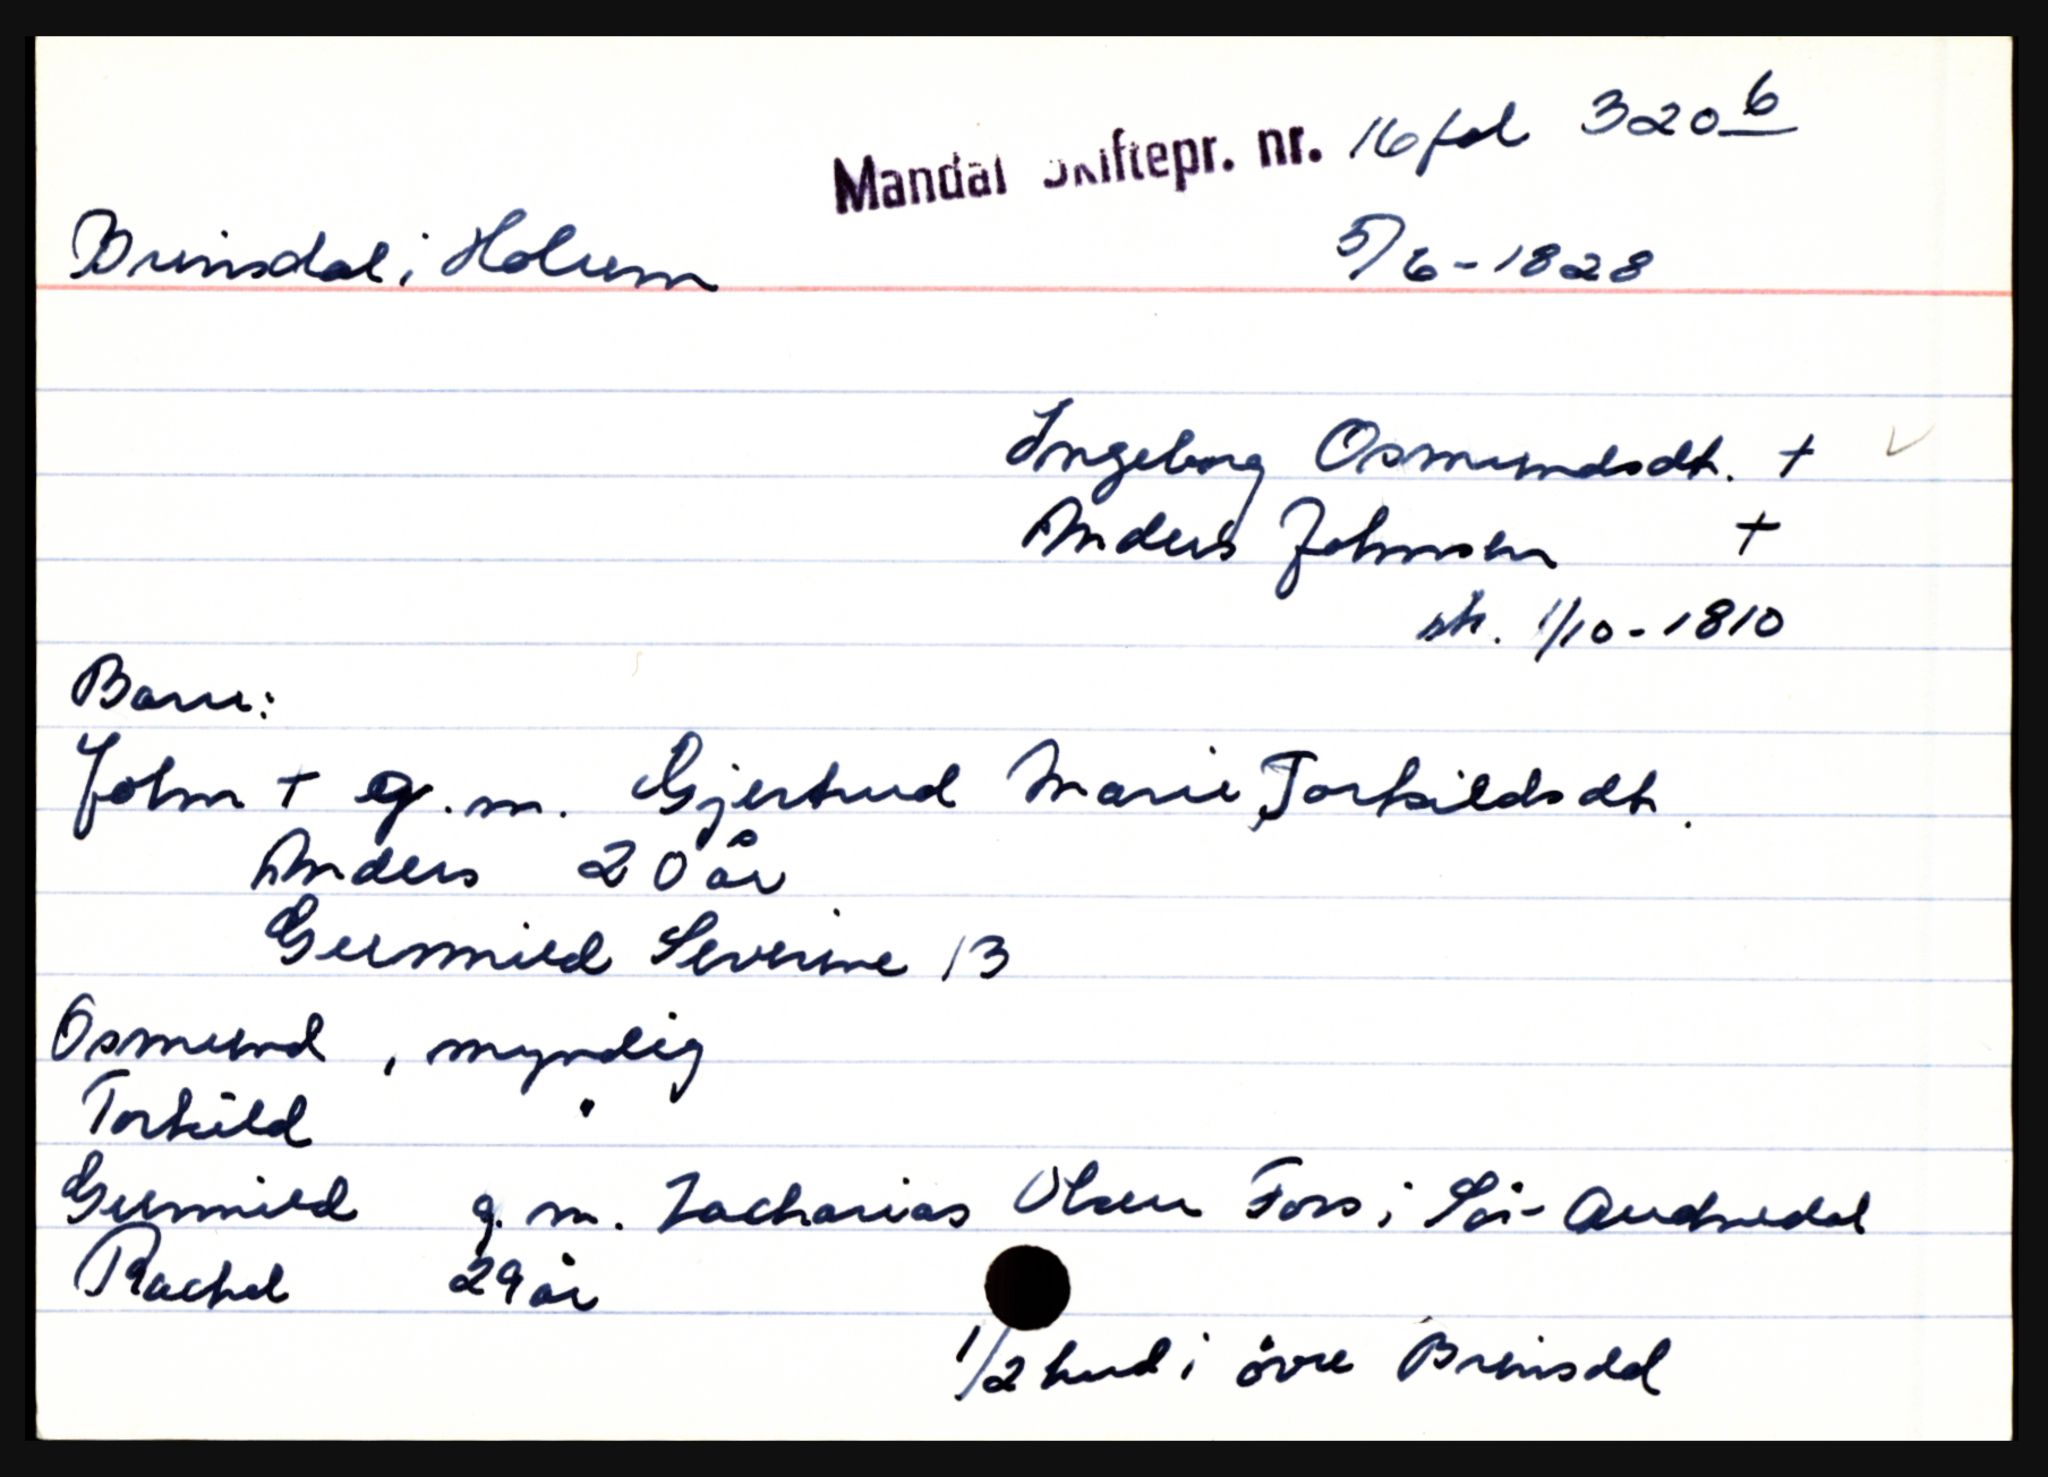 Mandal Skiftepr. nr. 16 fol 320 6
Brinsdal i Holum 5/6-1828
Ingeborg Osmundsdt. +
Anders Johnsen +
sk. 1/10-1810
Barn:
John + g.m. Gjertrud Marie Torkildsdt.
Anders 20 år
Gunnild Severine 13
Osmund, myndig
Torkild "
Gunnild g.m. Zacharias Olsen Foss i Sør-Audnedal
Rachel 29 år
1/2 hud i övre Brinsdal